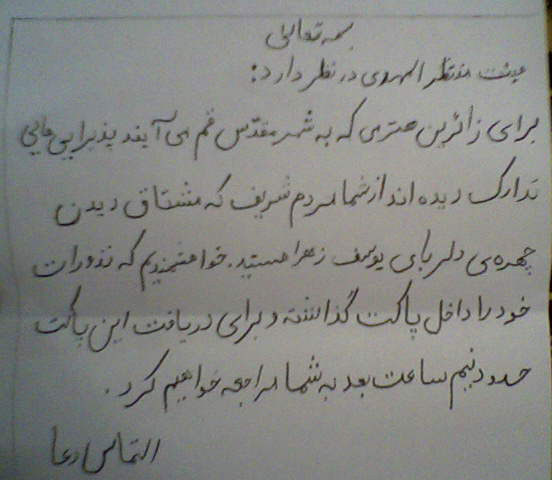 بسمه تعالی
هیئت منتظر المهدی در نظر دارد:
برای زائرین محترمی که به شهر مقدّس قم می آیند پذیرایی هایی
تدارک دیده اند از شما مردم شریف که مشتاق دیدن
چهره ی دلربای یوسف زهرا هستید. خواهشمندیم که نذورات
خود را داخل پاکت گذاشته و برای دریافت این پاکت
حدود نیم ساعت بعد به شما مراجعه خواهیم کرد.
التماس دعا